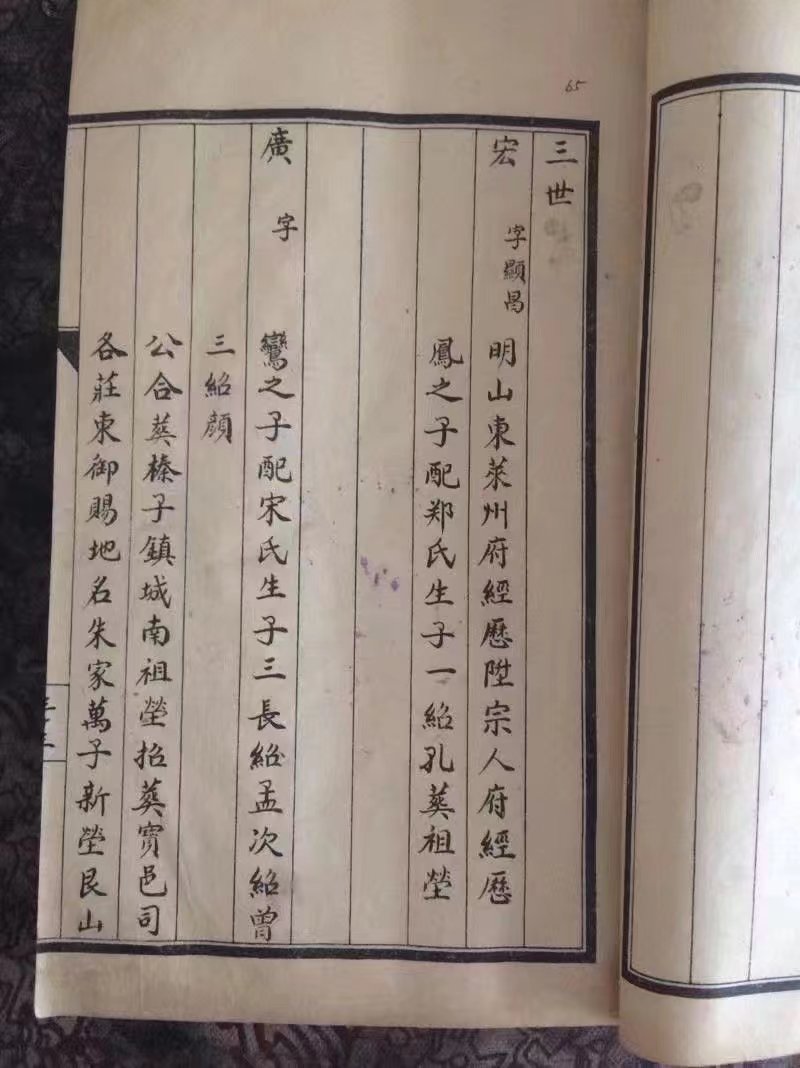 65
三世
宏 字顯昌 明山東萊州府經歷陞宗人府經歷
鳳之子配郑氏生子一紹孔葬祖塋
廣 字 鸞之子配宋氏生子三長紹孟次紹曾
三紹顔
公合葬榛子鎮城南祖塋招葬寳邑司
各莊東御賜地名朱家萬子新塋艮山